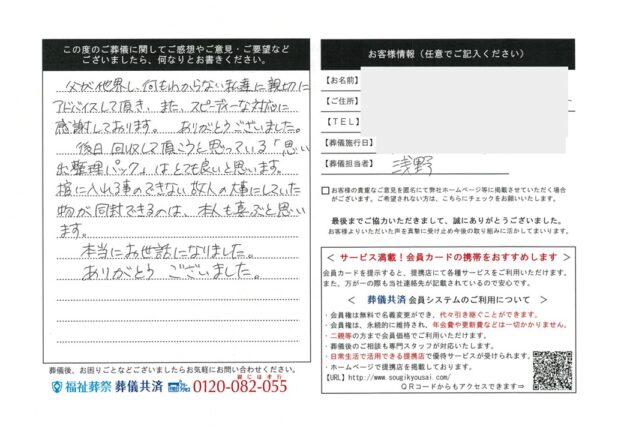 この度のご葬儀に関してご感想やご意見・ご要望など
ございましたら、何なりとお書きください。
父が他界し、何もわからない私達に親切に
アドバイスして頂き、また、スピーディーな対応に
感謝しております。 ありがとうございました。
後日 回収して頂こうと思っている「思い
出整理パック」は とても良いと思います。
棺に入れる事のできない故人の大事にしていた
物が同封できるのは、本人も喜ぶと思い
ます。
本当にお世話になりました。
ありがとう ございました。
葬儀後、お困りごとなどございましたらお気軽にお問い合わせください。
福祉葬祭 葬儀共済 0120-082-055
親には孝行
お客様情報（任意でご記入ください）
【お名前】
【ご住所】
【ＴＥＬ】
【葬儀施行日】
【葬儀担当者】 浅野
お客様の貴重なご意見を匿名にて弊社ホームページ等に掲載させていただく場合
がございます。ご希望されない方は、こちらにチェックをお願いします。
最後までご協力いただきまして、誠にありがとうございました。
お客様よりいただいた声を真摯に受け止め今後の取り組みに活かしてまいります。
＜ サービス満載！会員カードの携帯をおすすめします ＞
会員カードを提示すると、提携店にて各種サービスをご利用いただけます。
また、万が一の際も当社連絡先が記載されているので安心です。
＜ 葬儀共済 会員システムのご利用について ＞
・会員権は無料で名義変更ができ、代々引き継ぐことができます。
・会員権は、永続的に維持され、年会費や更新費などは一切かかりません。
・二親等の方まで会員価格でご利用いただけます。
・葬儀後のご相談も専門スタッフが対応いたします。
・日常生活で活用できる提携店で優待サービスが受けられます。
・ホームページで提携店を掲載しております。
【URL】http://www.sougikyousai.com/
ＱＲコードからもアクセスできます⇒